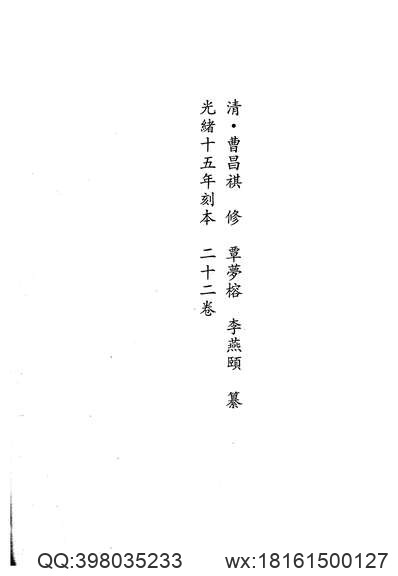 清・曹昌祺 修 覃夢榕 李燕頤 纂
光緒十五年刻本 二十二卷
QQ:398035233 wx:18161500127